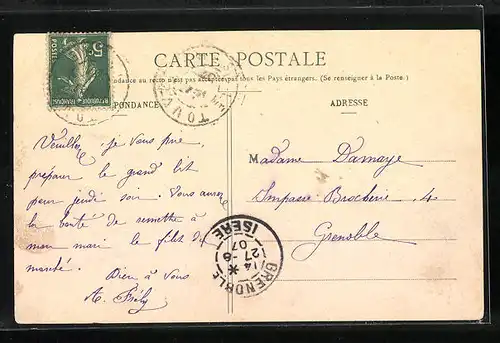 CARTE POSTALE
5c
POSTES
REPUBLIQUE FRANÇAISE
La correspondance au recto n'est pas acceptée par tous les Pays étrangers. (Se renseigner à la Poste.)
CORRESPONDANCE
ADRESSE
Veuillez, je vous prie,
préparer le grand lit
pour jeudi soir. Vous aurez
la bonté de remettre à
mon mari le filet du
marché.
Bien à vous
A.
Madame Damaye
Impasse Brocherie, 4
Grenoble
GRENOBLE
14 *
27-6
07
ISERE